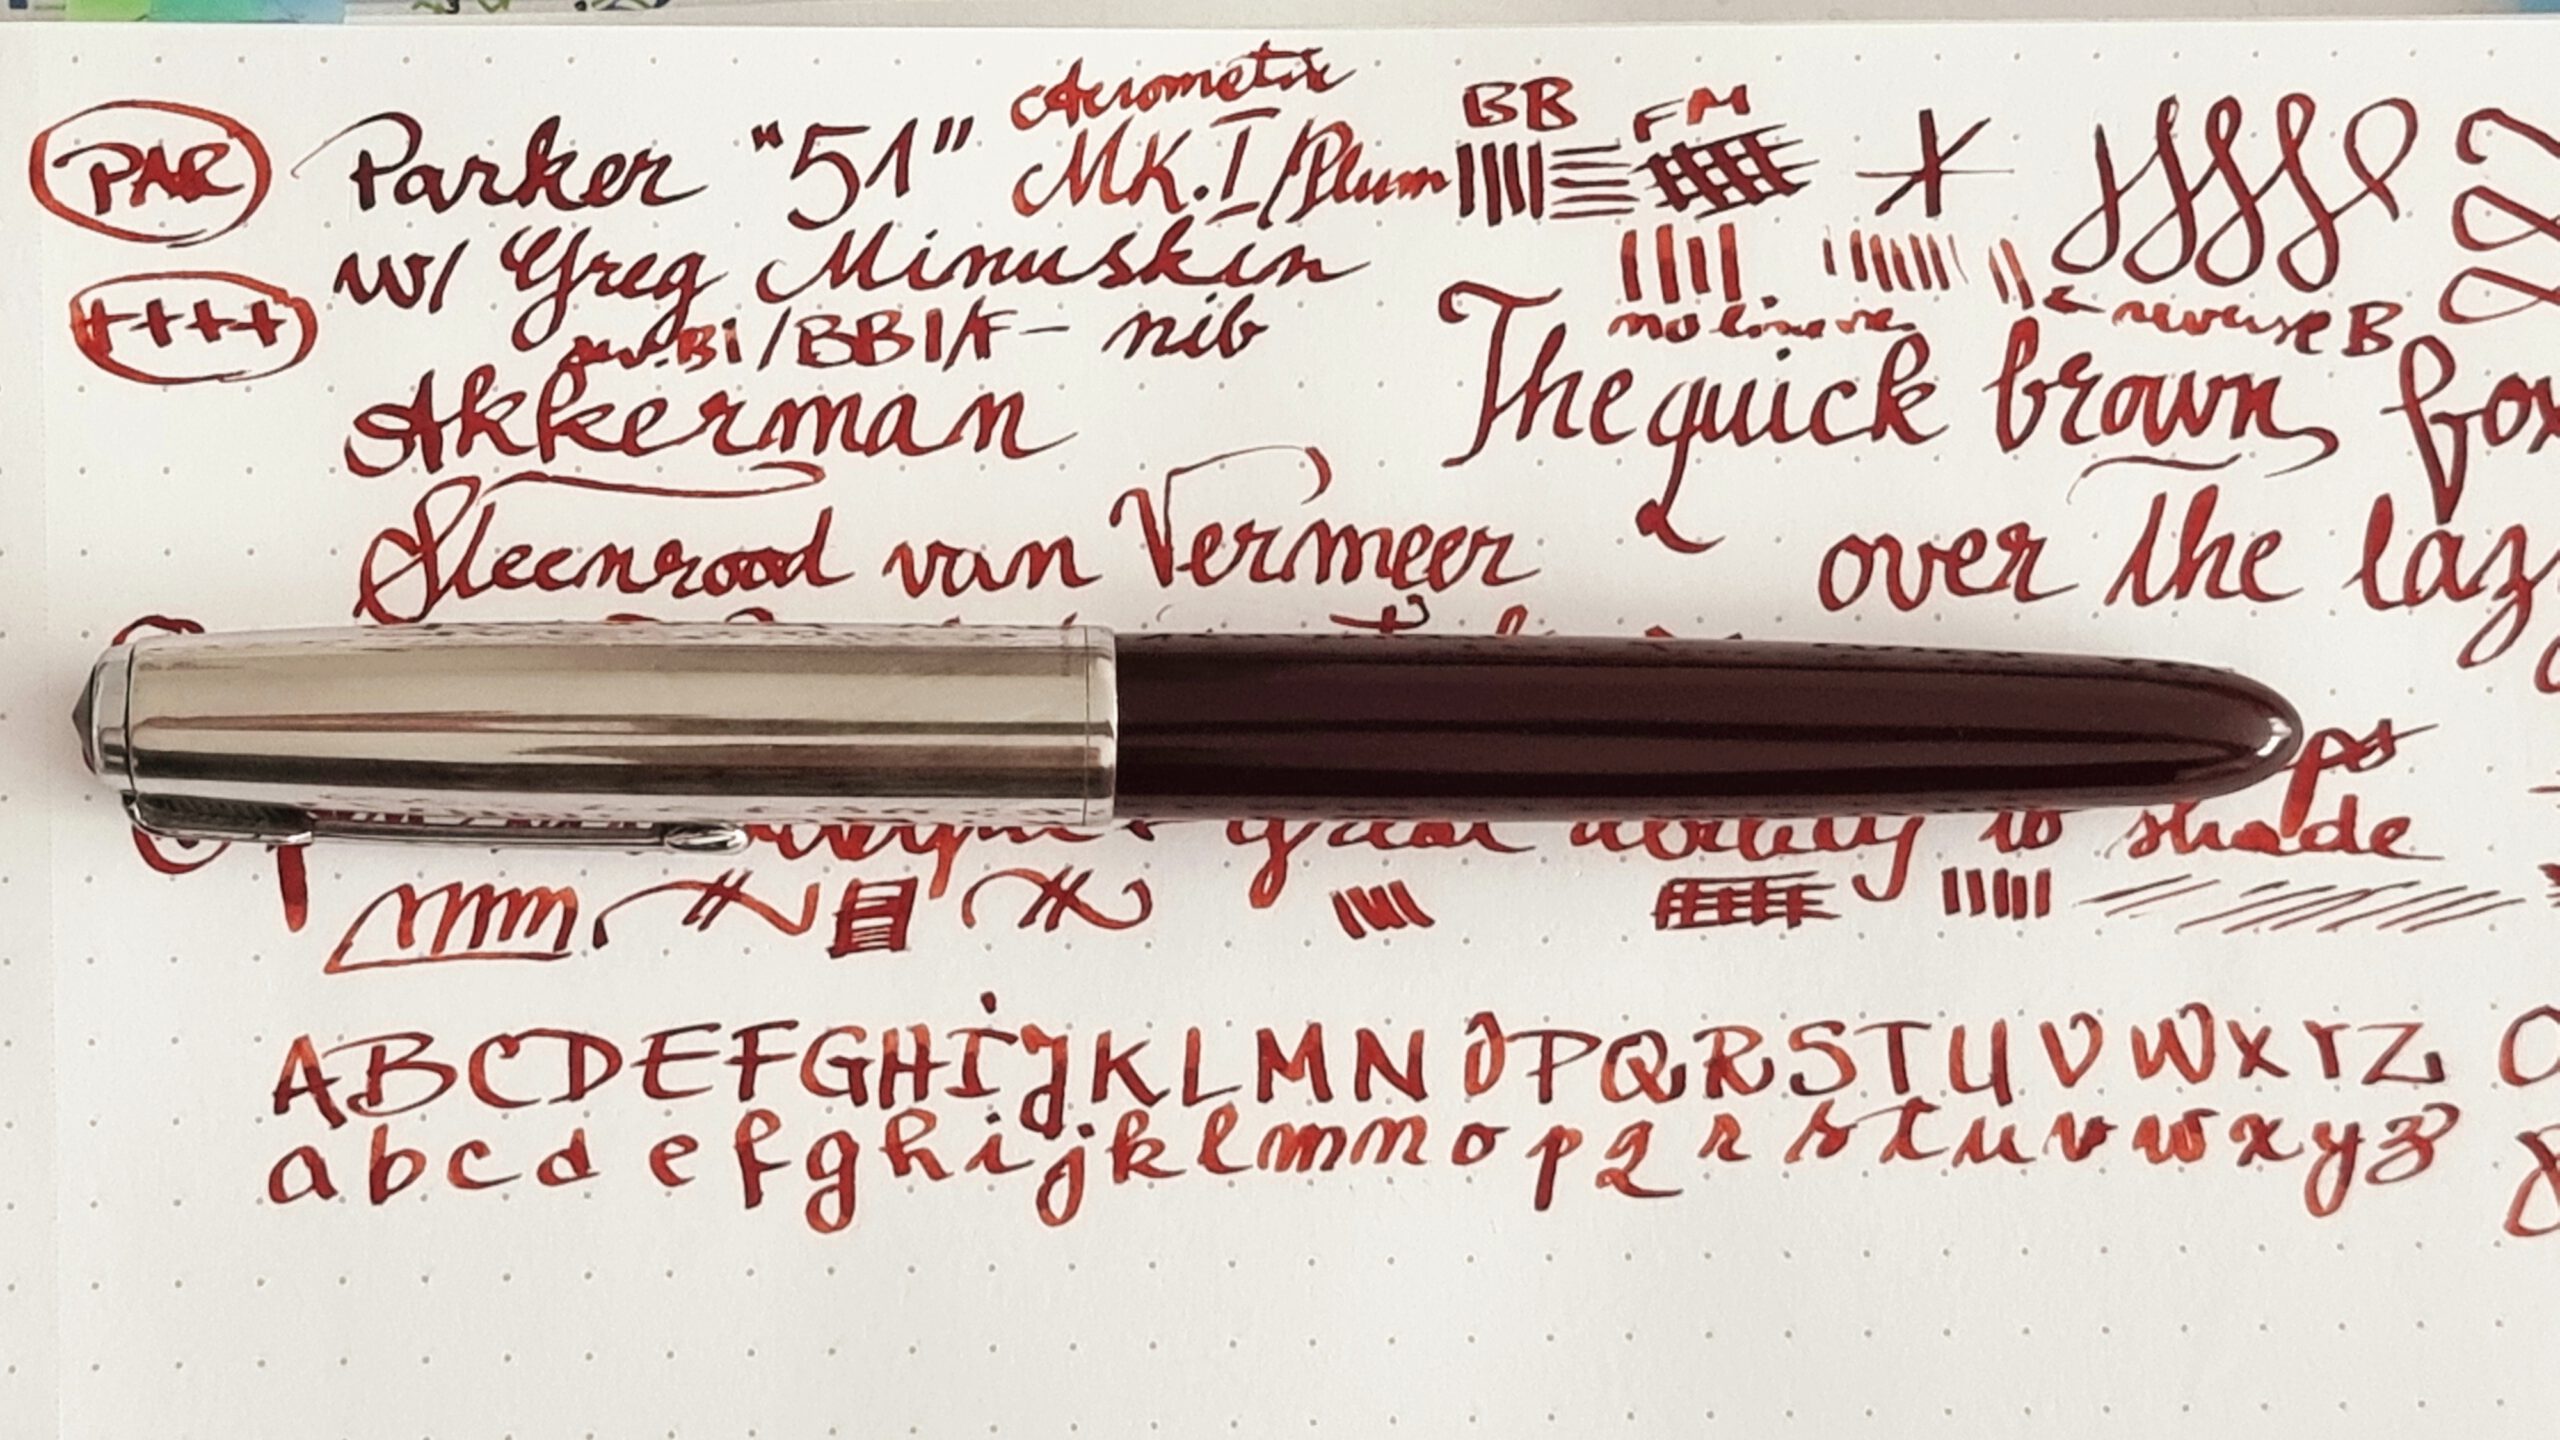 PAR Parker "51" Aerometric
MK.I/Plum
BB FM
w/ Greg Minuskin
rev.BI/BBI/F- nib
++++
no line var.
← reverse B
Akkerman
The quick brown fox
Steenrood van Vermeer
over the lazy
great ability to shade
ABCDEFGHIJKLMNOPQRSTUVWXYZ
abcdefghijklmnopqrstuvwxyz